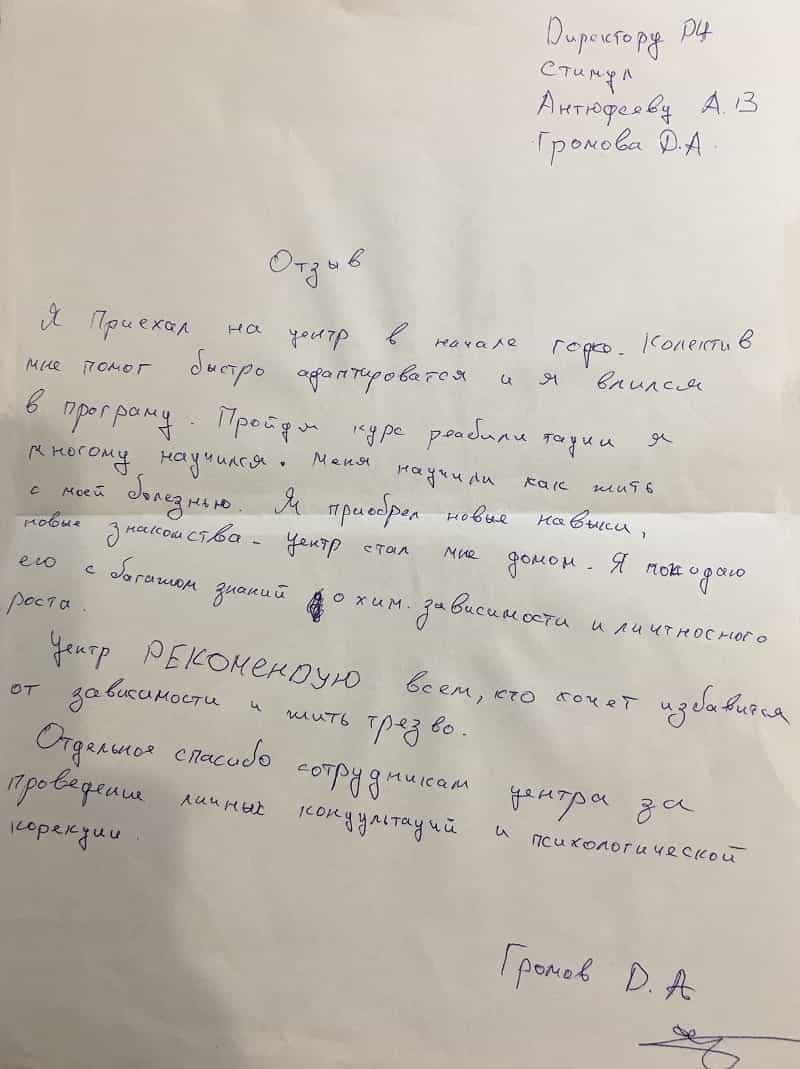 Директору РЦ
Стимул
Антюфееву А.В
Громова Д.А.
Отзыв
Я Приехал на центр в начале года. Колектив
мне помог быстро адаптироватся и я влился
в програму. Пройдя курс реабилитации я
многому научился. Меня научили как жить
с моей болезнью. Я приобрел новые навыки,
новые знакомства. Центр стал мне домом. Я покидаю
его с багажом знаний о хим. зависимости и личтносного
роста.
Центр РЕКОМЕНДУЮ всем, кто хочет избавится
от зависимости и жить трезво.
Отдельное спасибо сотрудникам центра за
проведение личных кондультаций и психологической
корекции.
Громов Д.А